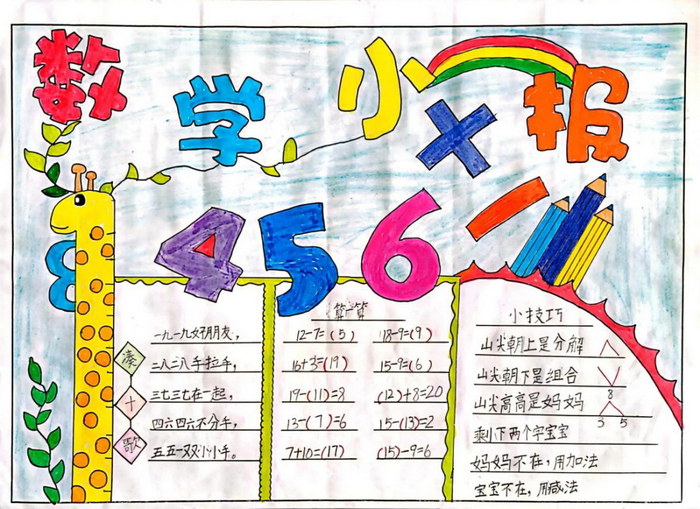 数学小报
8 4 5 6
凑十歌
一九一九好朋友,
二八二八手拉手,
三七三七在一起,
四六四六不分手,
五五一双小小手。
算一算
12-7=(5) 18-9=(9)
16+3=(19) 15-9=(6)
19-(11)=8 (12)+8=20
13-(7)=6 15-(13)=2
7+10=(17) (15)-9=6
小技巧
山尖朝上是分解
山尖朝下是组合
8
山尖高高是妈妈
3 5
剩下两个字宝宝
妈妈不在,用加法
宝宝不在,用减法